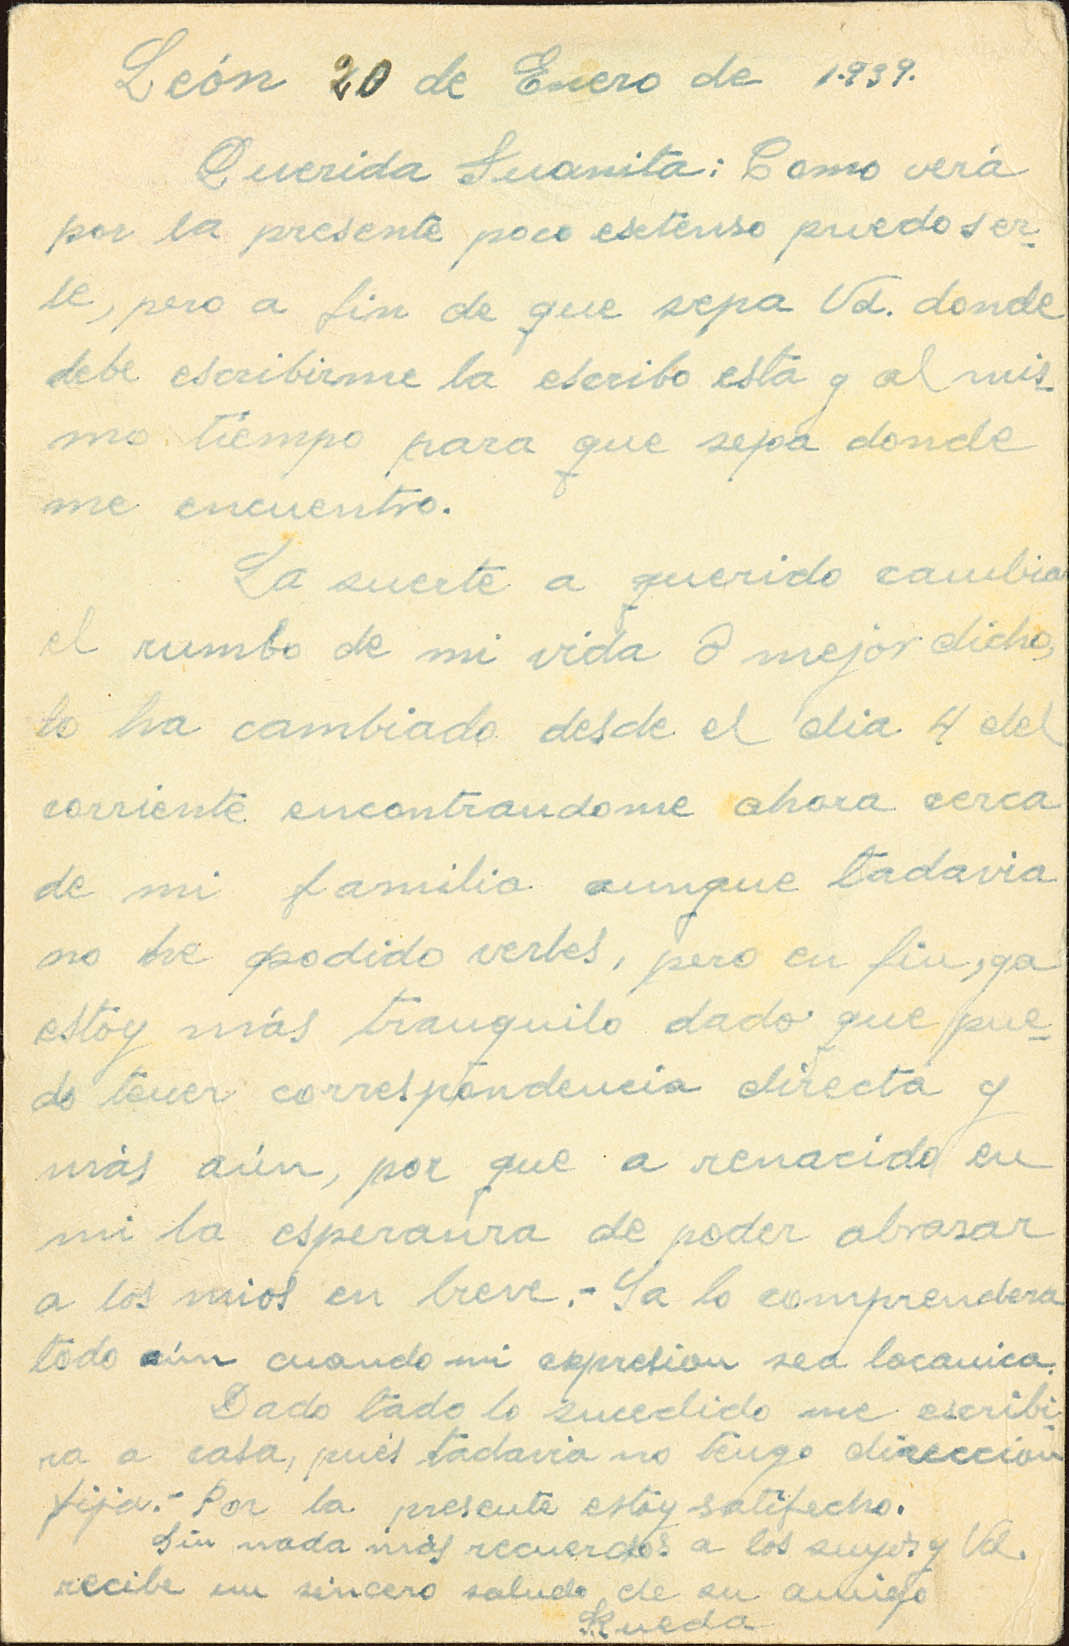 León 20 de Enero de 1.939.
Querida Juanita: Como verá
por la presente poco extenso puedo ser-
le, pero a fin de que sepa Vd. donde
debe escribirme la escribo esta y al mis-
mo tiempo para que sepa donde
me encuentro.
La suerte a querido cambiar
el rumbo de mi vida o mejor dicho,
lo ha cambiado desde el dia 4 del
corriente encontrandome ahora cerca
de mi familia aunque tadavia
no he podido verles, pero en fin, ya
estoy más tranquilo dado que pue-
do tener correspondencia directa y
más aún, por que a renacido en
mi la esperanza de poder abrazar
a los mios en breve.- Ya lo comprendera
todo aún cuando mi expresion sea lacanica.
Dado tado lo sucedido me escribi-
ra a casa, pués tadavia no tengo dirección
fija.- Por la presente estoy satifecho.
Sin nada más recuerdos a los suyos y Vd.
recibe un sincero saludo de su amigo
Rueda